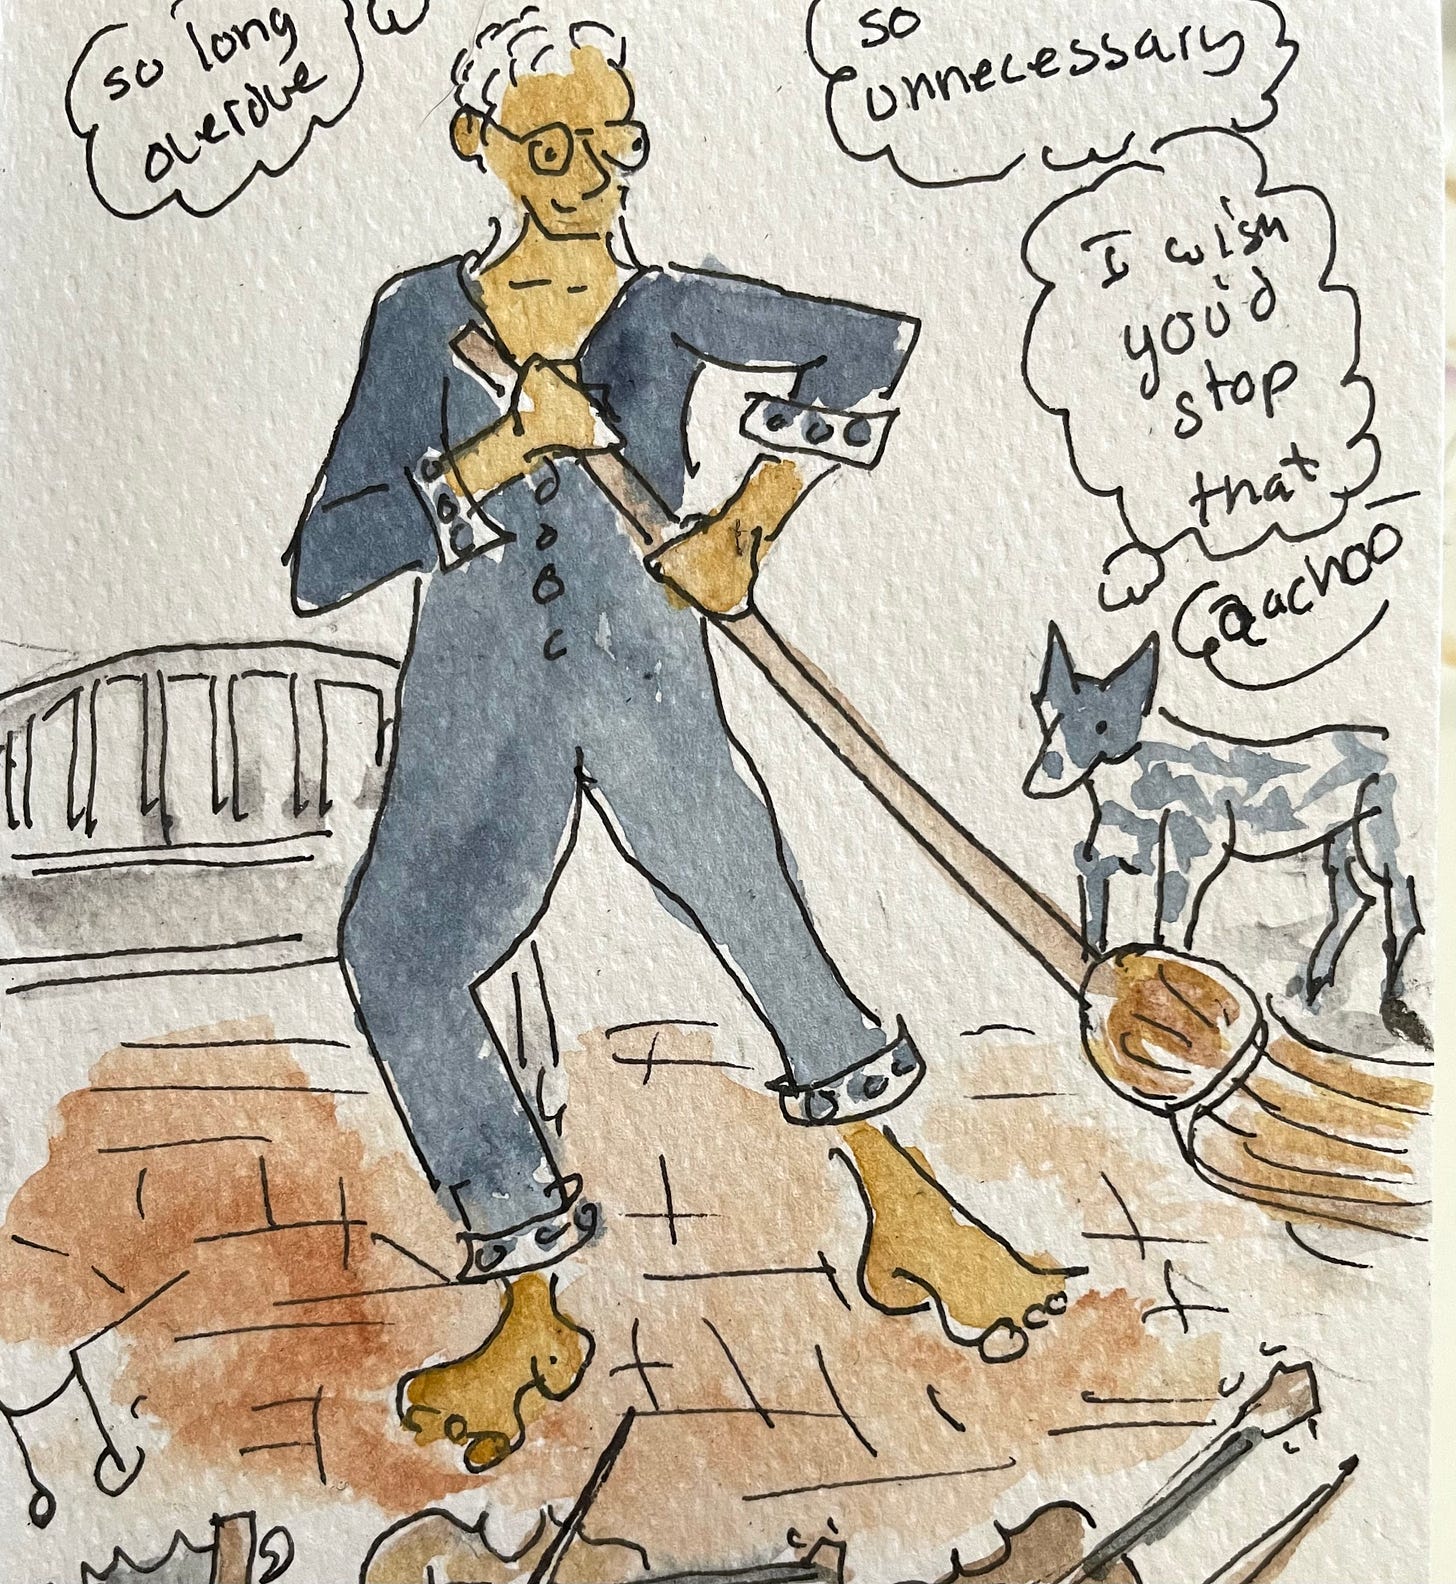 so long
overdue
so
unnecessary
I wish
you'd
stop
that
@achoo